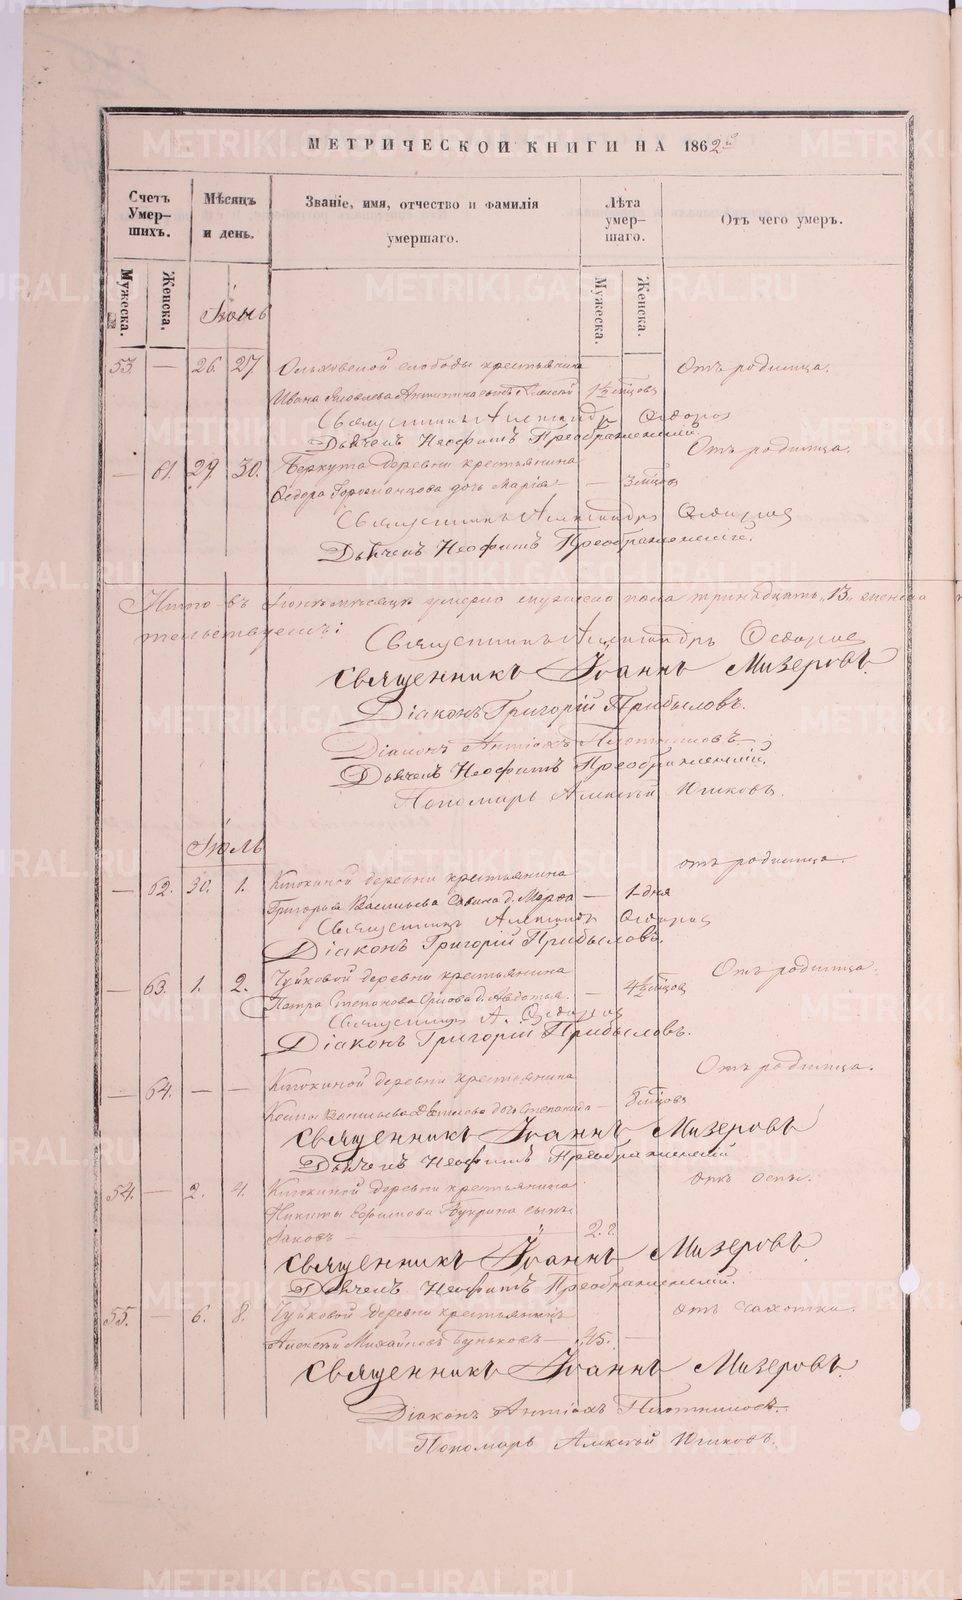 МЕТРИЧЕСКОЙ КНИГИ НА 1862й
Счетъ Умер-шихъ.
Мѣсяцъ и день.
Званіе, имя, отчество и фамилія умершаго.
Лѣта умер-шаго.
Отъ чего умеръ.
Мужеска.
Женска.
Мужеска.
Женска.
Іюнь
53 — 26. 27 Ольховской слободы крестьянина Отъ родимца.
Ивана Яковлева сынъ 1½ мѣсцовъ
Священникъ Александръ Ѳедоров
Дьячекъ Неофитъ Преображенскій.
— 61. 29. 30. Беркута деревни крестьянина Отъ родимца.
Ѳедора дочь Марія — — 3 мѣсцовъ
Священникъ Александръ Ѳедоров
Дьячекъ Неофитъ Преображенскій.
Итого въ Іюнѣ мѣсяцѣ умерло мужеска пола тринадцать „13„ женска
Священникъ Александръ Ѳедоров
Священникъ Іоаннъ Мизеровъ
Діаконъ Григорій Прибыловъ.
Діаконъ Антіохъ Плотниковъ
Дьячекъ Неофитъ Преображенскій.
Пономарь Алексѣй
Іюль
— 62. 30. 1. деревни крестьянина отъ родимца.
Григорья Васильева д. Марѳа — 1 дня
Священникъ Александръ Ѳедоров
Діаконъ Григорій Прибыловъ.
— 63. 1. 2. Чуйковой деревни крестьянина Отъ родимца.
Петра Степанова д. Авдотья. — 4½ мѣсцовъ
Священникъ А. Ѳедоров
Діаконъ Григорій Прибыловъ.
— 64. — — деревни крестьянина Отъ родимца.
Васильева дочь Степанида — 8 мѣсцовъ
Священникъ Іоаннъ Мизеровъ
Дьячекъ Неофитъ Преображенскій
54. — 2. 4. деревни крестьянина отъ оспы.
Никиты Ефимова сынъ
Іаковъ — 2. г.
Священникъ Іоаннъ Мизеровъ
Дьячекъ Неофитъ Преображенскій.
55. — 6. 8. Чуйковой деревни крестьянинъ отъ чахотки.
Алексѣй Михайловъ Буньковъ —
Священникъ Іоаннъ Мизеровъ
Діаконъ Антіохъ Плотниковъ
Пономарь Алексѣй
METRIKI.GASO-URAL.RU